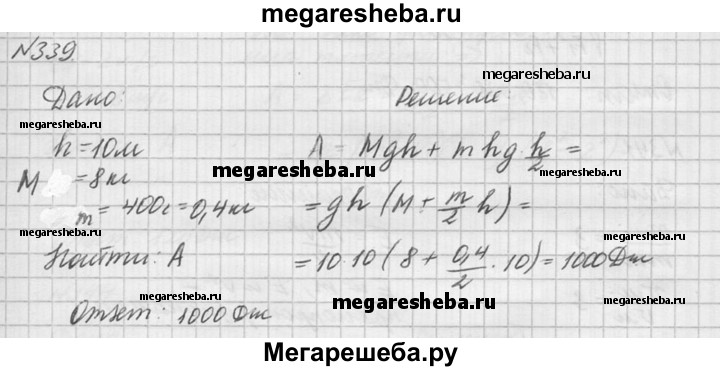 megaresheba.ru
№339.
megaresheba.ru
Дано: Решение:
megaresheba.ru megaresheba.ru
h = 10 м A = Mgh + mhg h/2 =
megaresheba.ru
M = 8 кг
m = 400г = 0,4 кг = gh (M + m/2 h) =
megaresheba.ru megaresheba.ru
Найти: A = 10·10 (8 + 0,4/2 · 10) = 1000 Дж
megaresheba.ru megaresheba.ru
Ответ: 1000 Дж
megaresheba.ru
megaresheba.ru
Мегарешеба.ру